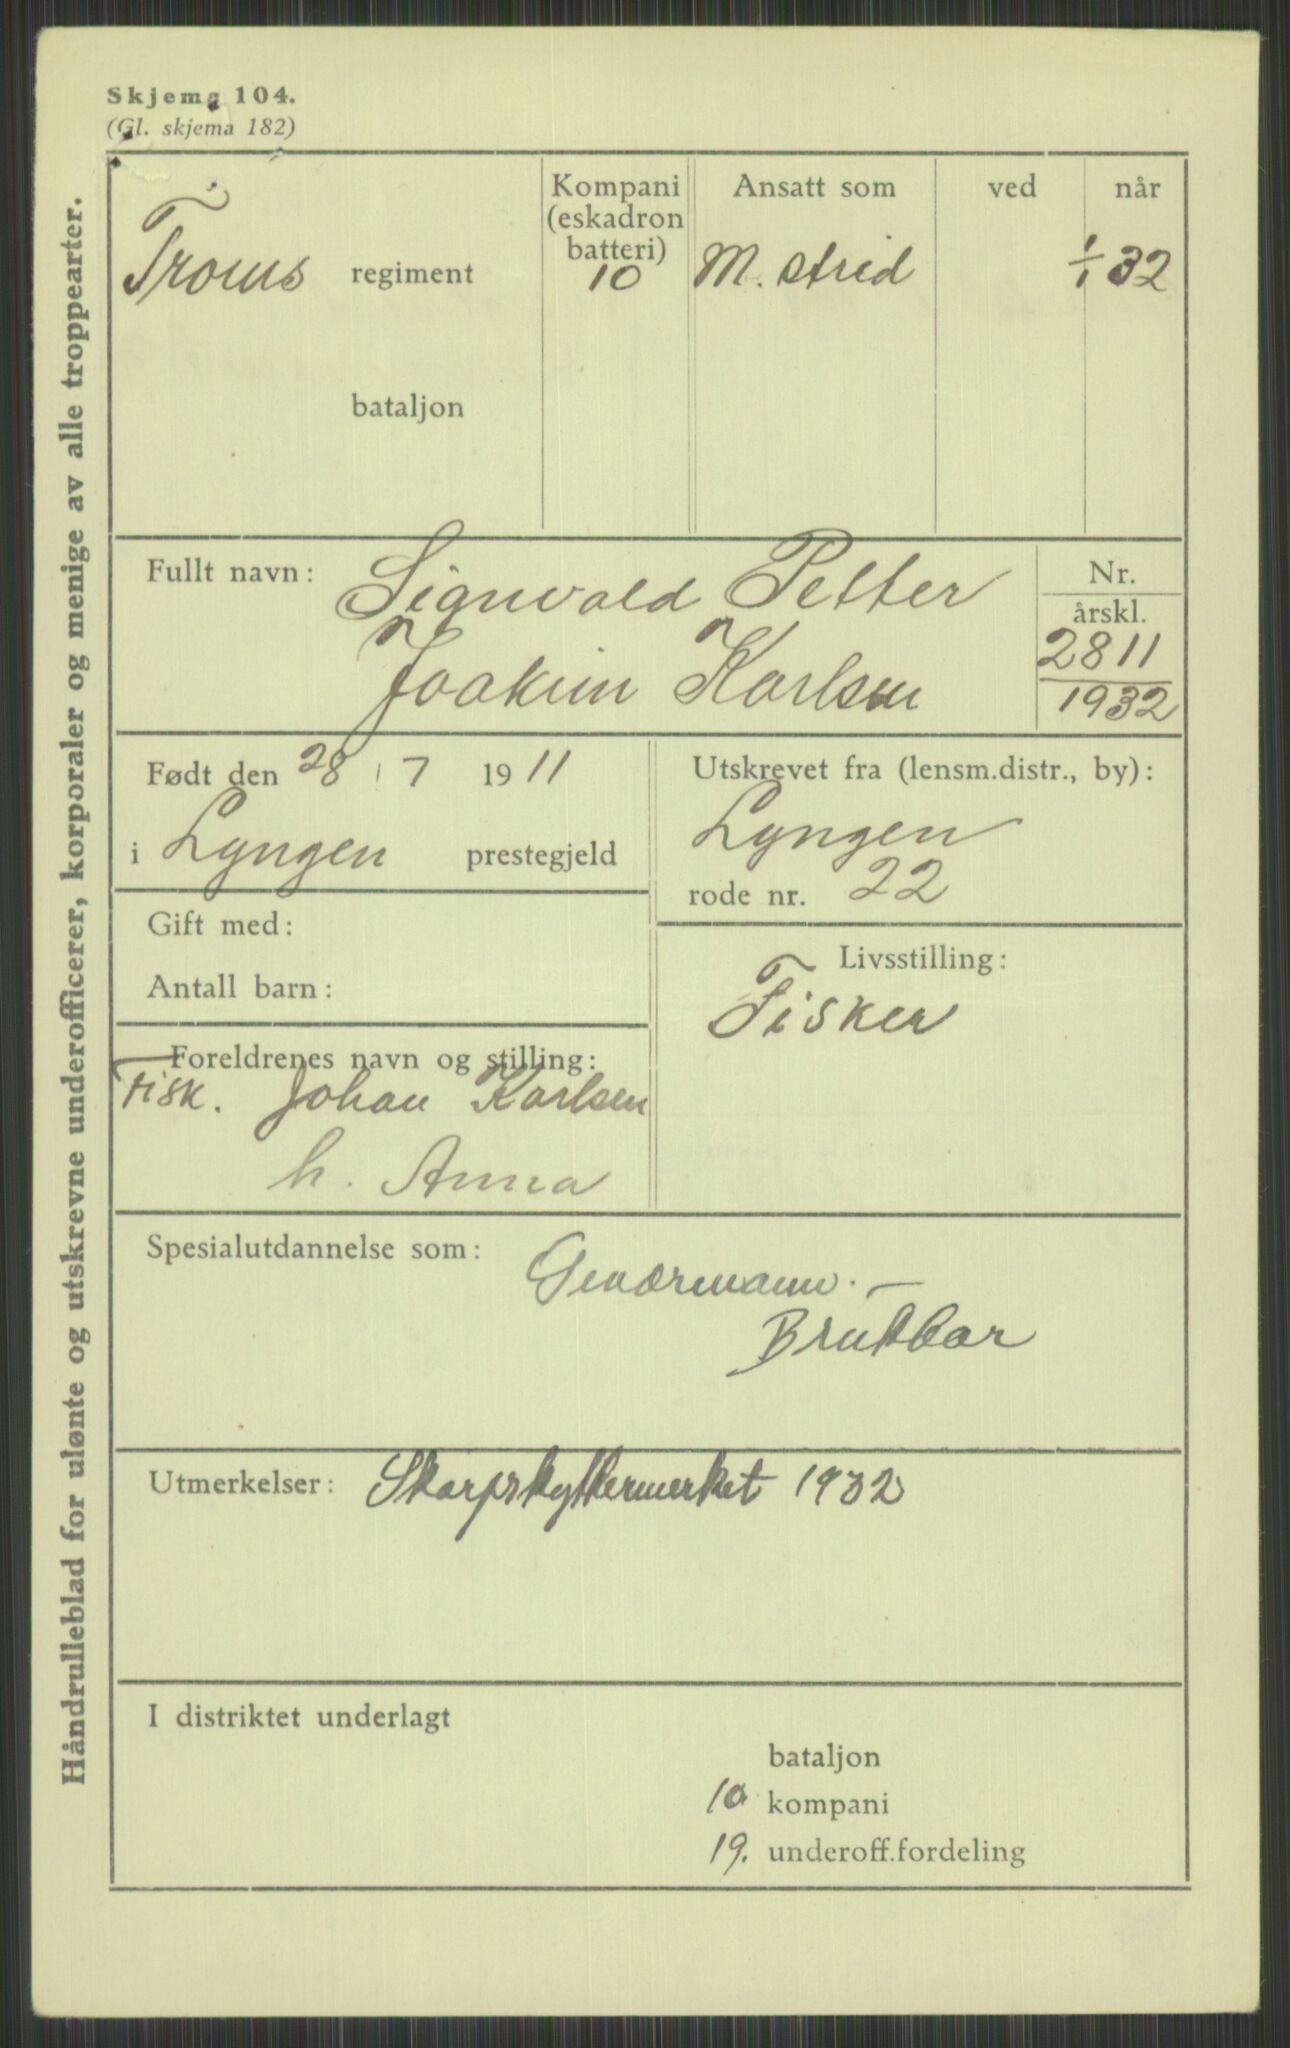 Skjema 104.
(Gl. skjema 182)
Håndrulleblad for ulønte og utskrevne underofficerer, korporaler og menige av alle troppearter.
Kompani (eskadron batteri) Ansatt som ved når
Troms regiment 10 M. strid 1/1 32
bataljon
Fullt navn: Sigvald Petter
Joakim Karlsen
Nr.
årskl.
2811
1932
Født den 28 / 7 1911
i Lyngen prestegjeld
Utskrevet fra (lensm.distr., by):
Lyngen
rode nr. 22
Gift med:
Antall barn:
Livsstilling:
Fisker
Foreldrenes navn og stilling:
Fisk. Johan Karlsen
h. Anna
Spesialutdannelse som: Geværmann. —
Brukbar
Utmerkelser: Skarpskyttermerket 1932
I distriktet underlagt
bataljon
10 kompani
19. underoff.fordeling